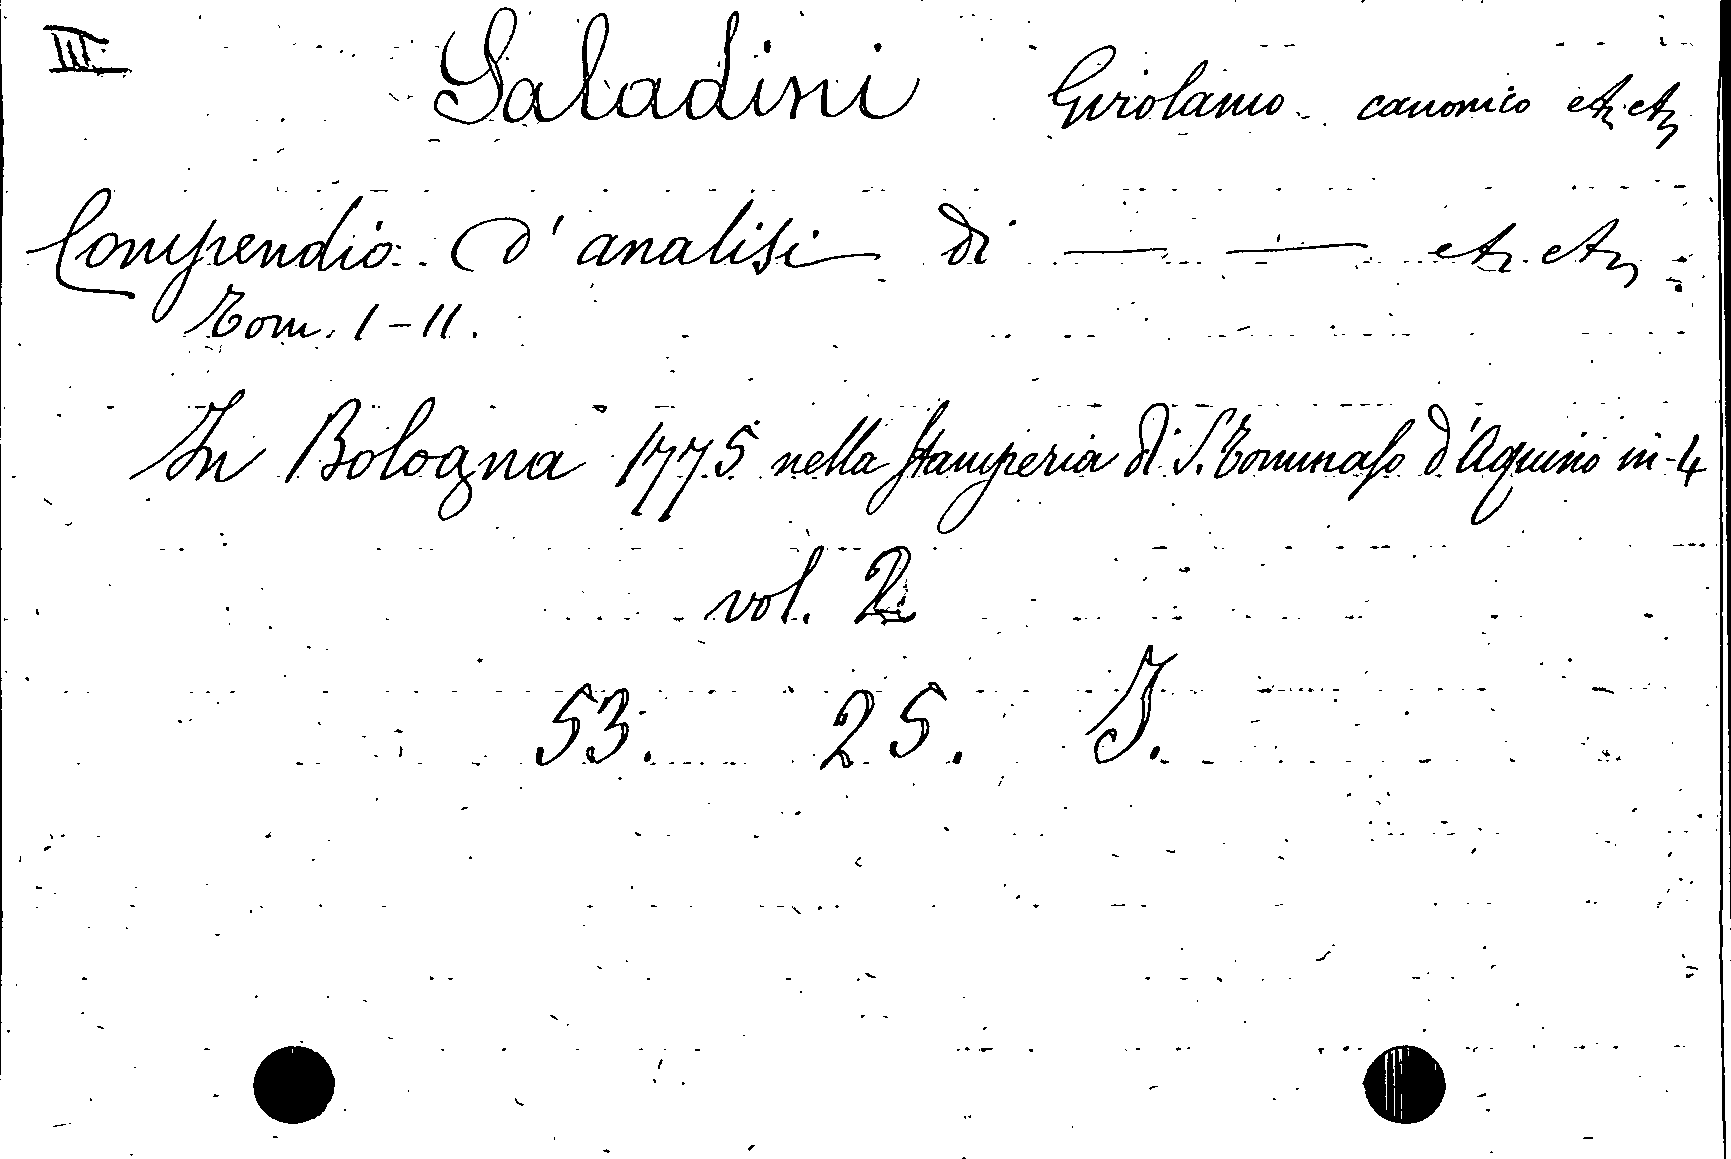 III.
Saladini Girolamo canonico etc. etc.
Compendio d'analisi di — — etc. etc.
Tom. I-II.
In Bologna 1775 nella stamperia di S. Tommaso d'Aquino in-4
vol. 2
53. 25. J.